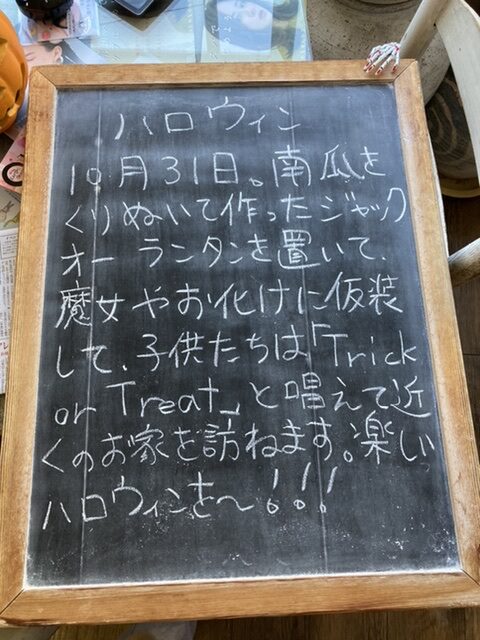 ハロウィン
10月31日。南瓜を
くりぬいて作ったジャック
オーランタンを置いて、
魔女やお化けに仮装
して、子供たちは「Trick
or Treat」と唱えて近
くのお家を訪ねます。楽しい
ハロウィンを〜!!!